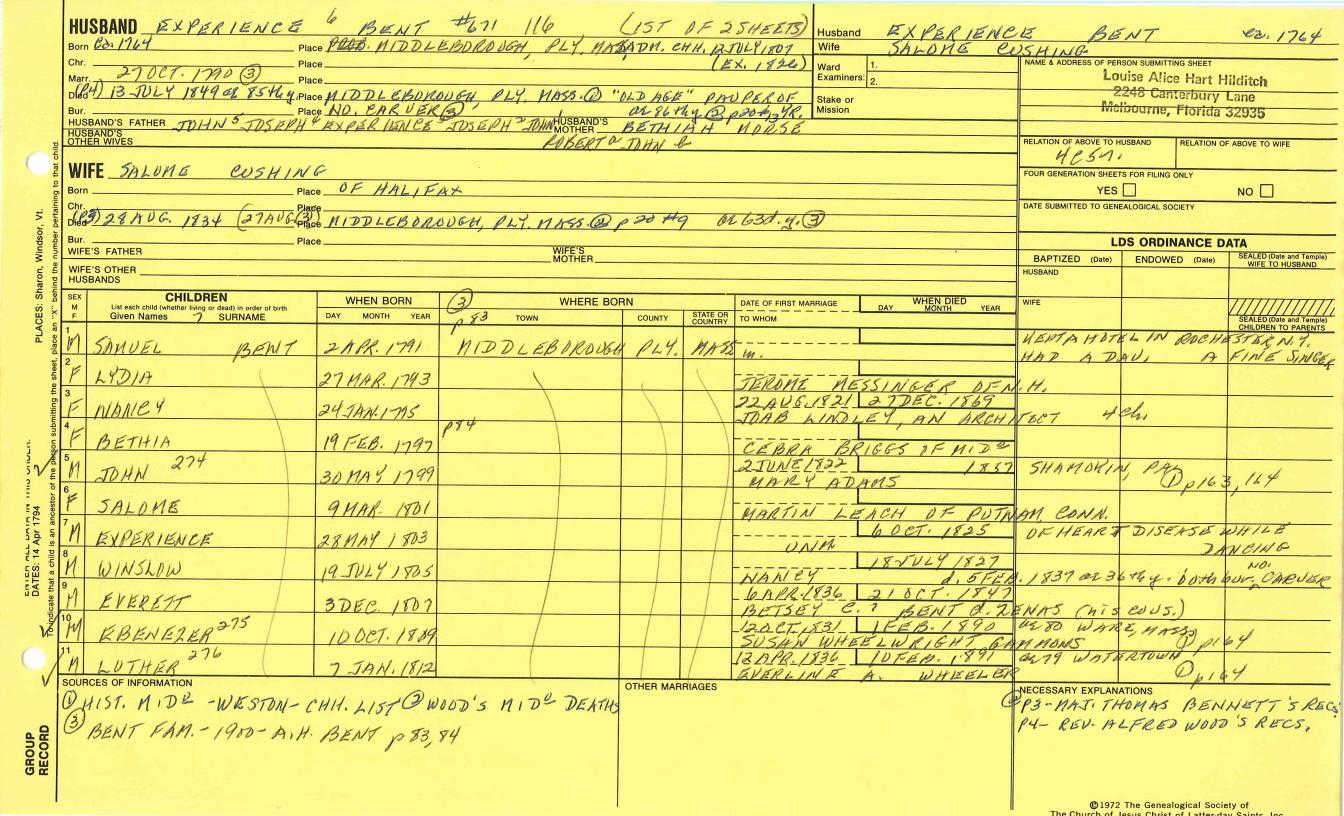 HUSBAND EXPERIENCE 6 BENT #671 116 (1ST OF 2 SHEETS)
Born ca. 1764 Place MIDDLEBOROUGH, PLY. MASS. ADM. CHH. 12 JULY 1807
Chr. Place (EX. 1826)
Marr. 27 OCT. 1790 ③ Place
Died (P4) 13 JULY 1849 ae 85th y. Place MIDDLEBOROUGH, PLY. MASS. ② "OLD AGE" PAUPER OF
Bur. Place NO. CARVER ③ or 96th y ② p20 #13 YR.
HUSBAND'S FATHER JOHN 5 JOSEPH 4 EXPERIENCE 3 JOSEPH 2 JOHN HUSBAND'S MOTHER BETHIAH MORSE
HUSBAND'S OTHER WIVES ROBERT a JOHN b
WIFE SALOME CUSHING
Born Place OF HALIFAX
Chr. Place
Died (P3) 28 AUG. 1834 (27 AUG. ③) Place MIDDLEBOROUGH, PLY. MASS. ② p 20 #9 ae 63d. y. ③
Bur. Place
WIFE'S FATHER WIFE'S MOTHER
WIFE'S OTHER HUSBANDS
Husband EXPERIENCE BENT ca. 1764
Wife SALOME CUSHING
Ward Examiners: 1. 2.
Stake or Mission
NAME & ADDRESS OF PERSON SUBMITTING SHEET
Louise Alice Hart Hilditch
2248 Canterbury Lane
Melbourne, Florida 32935
RELATION OF ABOVE TO HUSBAND RELATION OF ABOVE TO WIFE
4C5r.
FOUR GENERATION SHEETS FOR FILING ONLY
YES NO
DATE SUBMITTED TO GENEALOGICAL SOCIETY
LDS ORDINANCE DATA
BAPTIZED (Date) ENDOWED (Date) SEALED (Date and Temple) WIFE TO HUSBAND
HUSBAND
WIFE
SEALED (Date and Temple) CHILDREN TO PARENTS
SEX M F CHILDREN WHEN BORN ③ WHERE BORN DATE OF FIRST MARRIAGE WHEN DIED
List each child (whether living or dead) in order of birth
Given Names 7 SURNAME DAY MONTH YEAR p 83 TOWN COUNTY STATE OR COUNTRY TO WHOM DAY MONTH YEAR
1 M SAMUEL BENT 2 APR. 1791 MIDDLEBOROUGH PLY. MASS m. KEPT A HOTEL IN ROCHESTER, N.Y.
HAD A DAU, A FINE SINGER
2 F LYDIA 27 MAR. 1793
JEROME MESSINGER OF N.H.
3 F NANCY 24 JAN. 1795 22 AUG. 1821 27 DEC. 1869
JOAB WINDLEY, AN ARCHITECT 4 ch.
4 F BETHIA 19 FEB. 1797 p84
CEBRA BRIGGS OF MID
5 M JOHN 274 30 MAY 1799 2 JUNE 1822 1857 SHAMOKIN, PA
MARY ADAMS ① p163, 164
6 F SALOME 9 MAR. 1801
MARTIN LEACH OF PUTNAM CONN.
7 M EXPERIENCE 28 MAY 1803 6 OCT. 1825 OF HEART DISEASE WHILE
UNM DANCING
8 M WINSLOW 19 JULY 1805 18 JULY 1827
NANCY d. 5 FEB. 1837 ae 36th y. both bur. NO. CARVER
9 M EVERETT 3 DEC. 1807 6 APR. 1836 21 OCT. 1847
BETSEY C. 7 BENT d. ZENAS (his cous.)
10 M EBENEZER 275 10 OCT. 1809 12 OCT. 1831 1 FEB. 1890 ae 80 WARE, MASS
SUSAN WHEELWRIGHT GAMMONS ① p164
11 M LUTHER 276 7 JAN. 1812 12 APR. 1836 10 FEB. 1891 ae 79 WATERTOWN
EVERLINE A. WHEELER ① p164
SOURCES OF INFORMATION OTHER MARRIAGES NECESSARY EXPLANATIONS
① HIST. MID -WESTON- CHH. LIST ② WOOD'S MID DEATHS
③ BENT FAM. - 1900 - A.H. BENT p 83, 84
② P3 - MAJ. THOMAS BENNETT'S RECS.
P4 - REV. ALFRED WOOD'S RECS.
©1972 The Genealogical Society of
The Church of Jesus Christ of Latter-day Saints, Inc.
GROUP RECORD
ENTER ALL DATA IN THIS ORDER:
DATES: 14 Apr 1794
PLACES: Sharon, Windsor, Vt.
To indicate that a child is an ancestor of the person submitting the sheet, place an "X" behind the number pertaining to that child.